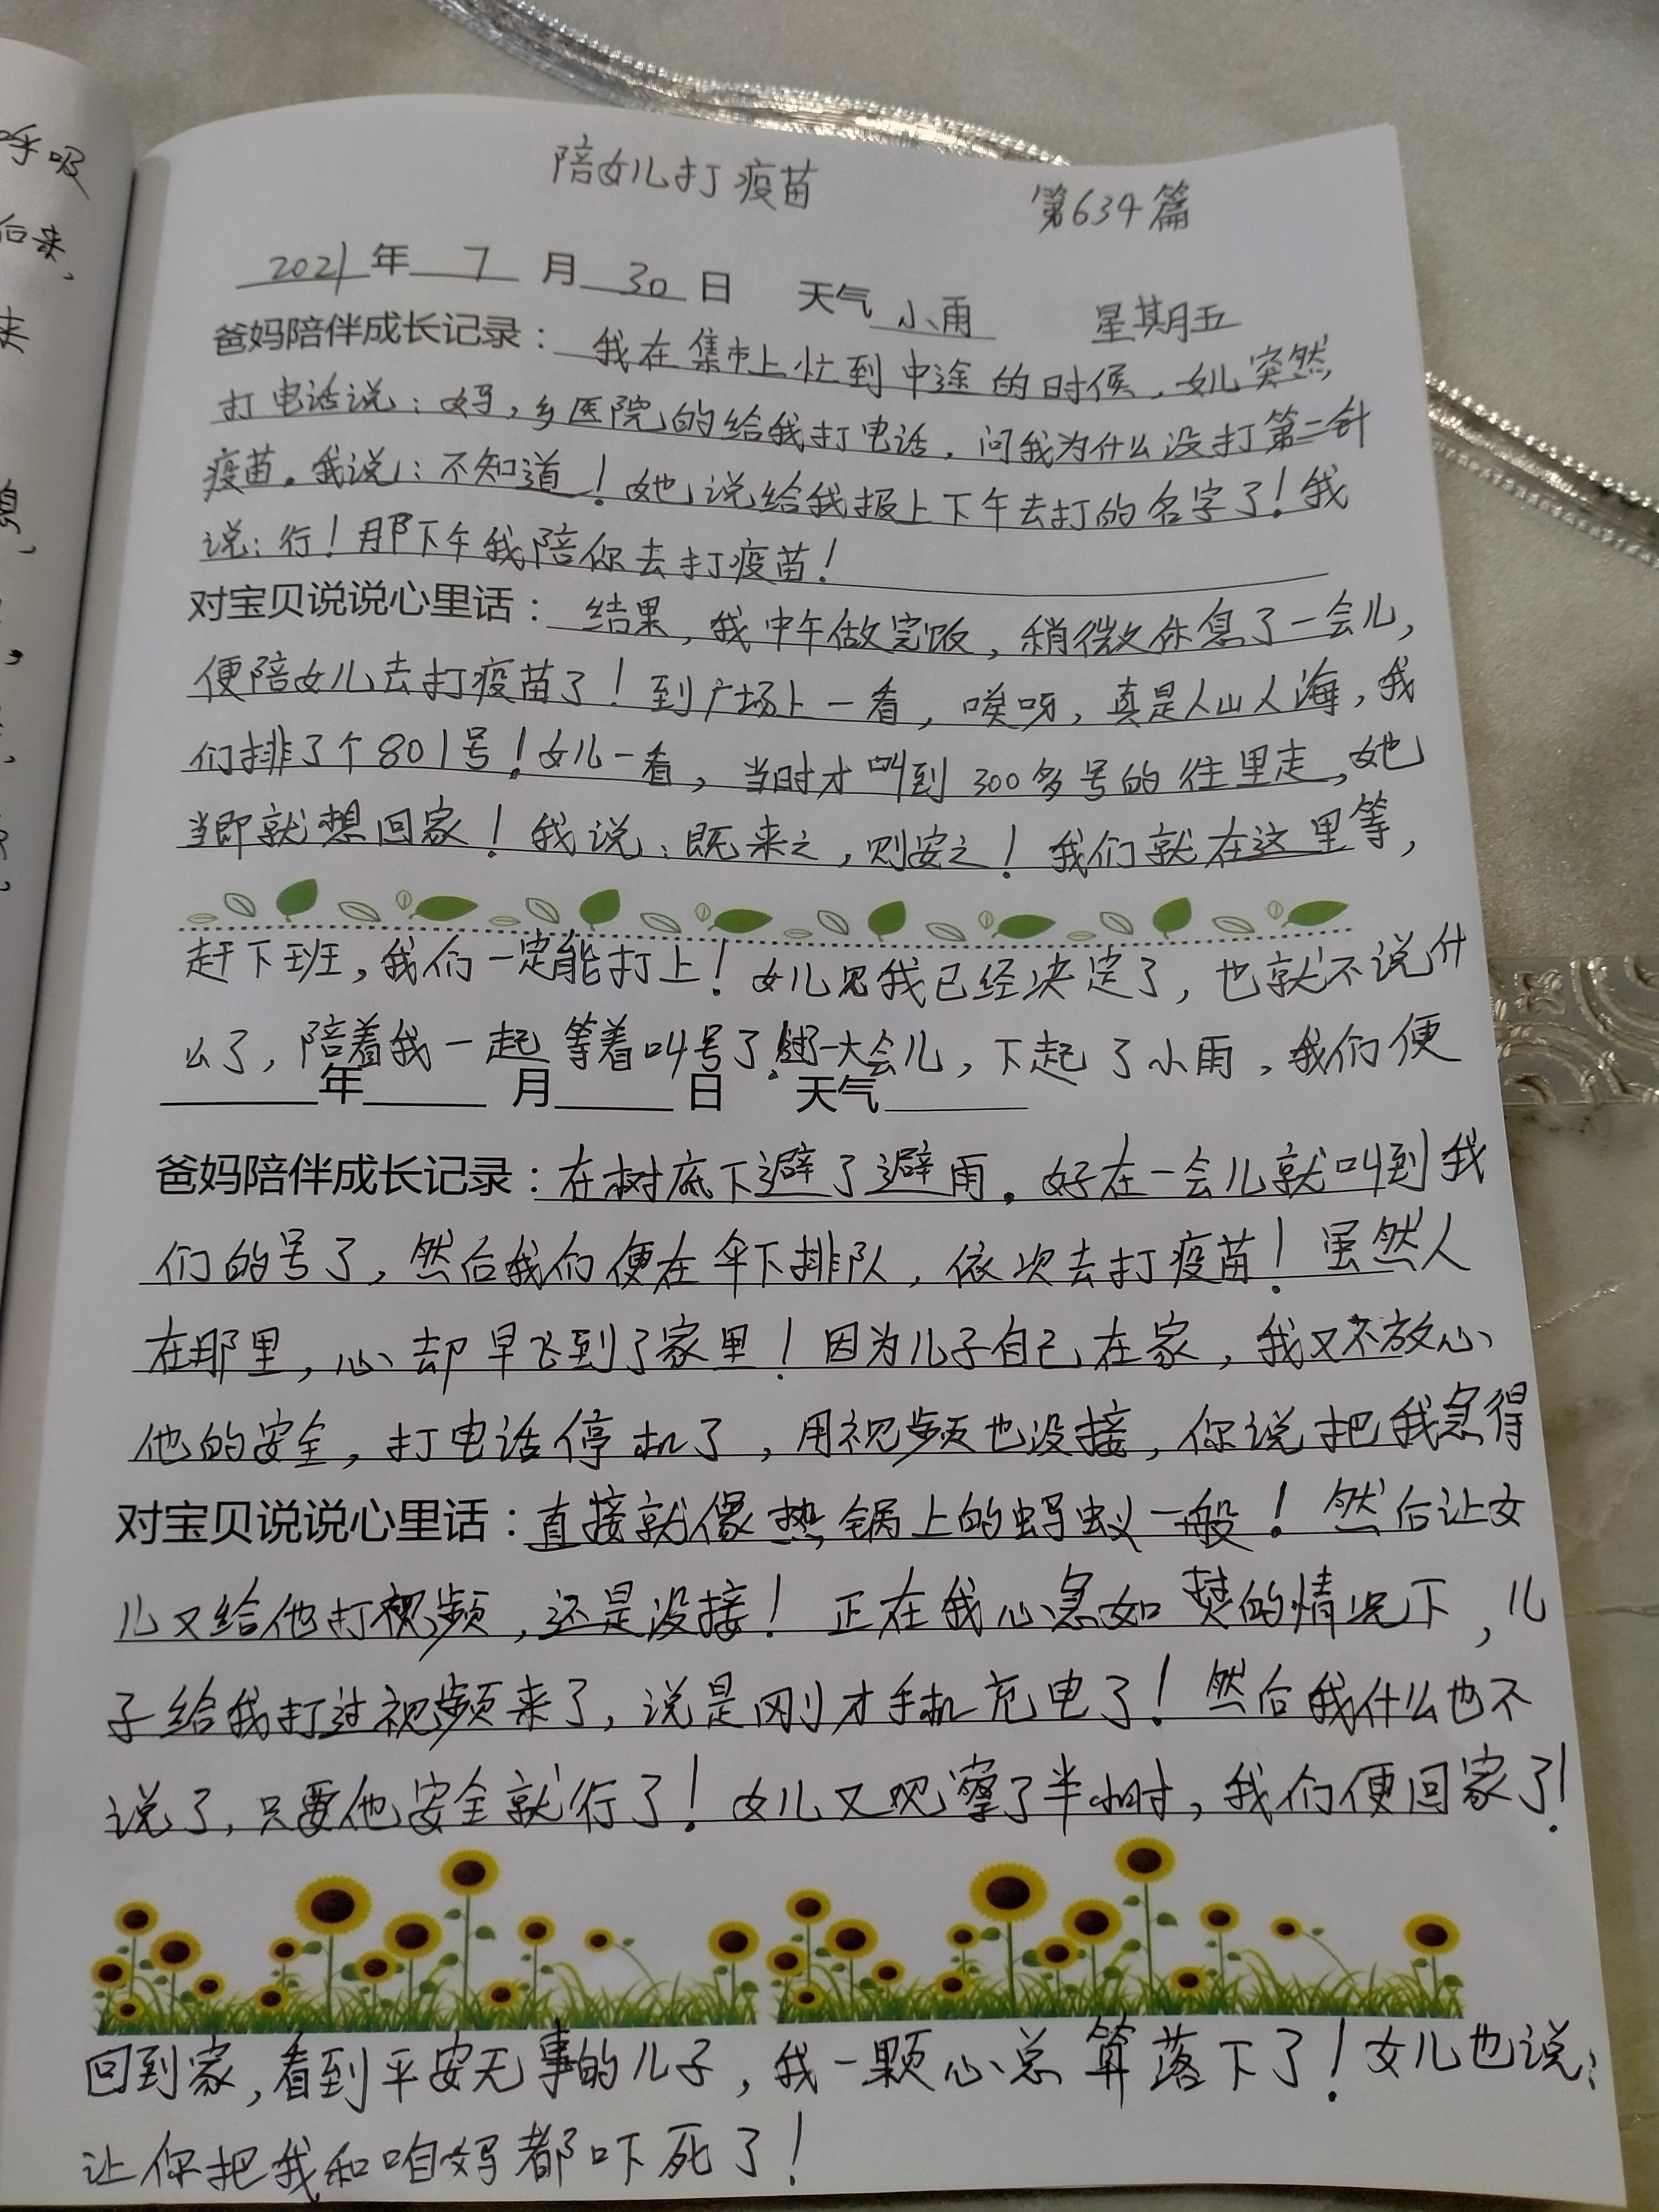 呼吸
后来,
来
息,
陪女儿打疫苗 第634篇
2021年 7 月 30 日 天气 小雨 星期五
爸妈陪伴成长记录: 我在集市上忙到中途的时候,女儿突然
打电话说:妈,乡医院的给我打电话,问我为什么没打第二针
疫苗。我说:不知道!她说给我报上下午去打的名字了!我
说:行!那下午我陪你去打疫苗!
对宝贝说说心里话: 结果,我中午做完饭,稍微休息了一会儿,
便陪女儿去打疫苗了!到广场上一看,唉呀,真是人山人海,我
们排了个801号!女儿一看,当时才叫到300多号的往里走,她
当即就想回家!我说:既来之,则安之!我们就在这里等,
赶下班,我们一定能打上!女儿见我已经决定了,也就不说什
么了,陪着我一起等着叫号了!一大会儿,下起了小雨,我们便
年 月 日 天气
爸妈陪伴成长记录:在树底下避了避雨。好在一会儿就叫到我
们的号了,然后我们便在伞下排队,依次去打疫苗!虽然人
在那里,心却早飞到了家里!因为儿子自己在家,我又不放心
他的安全,打电话停机了,用视频也没接,你说把我急得
对宝贝说说心里话:直接就像热锅上的蚂蚁一般!然后让女
儿又给他打视频,还是没接!正在我心急如焚的情况下,儿
子给我打过视频来了,说是刚才手机充电了!然后我什么也不
说了,只要他安全就行了!女儿又观察了半小时,我们便回家了!
回到家,看到平安无事的儿子,我一颗心总算落下了!女儿也说:
让你把我和咱妈都吓死了!